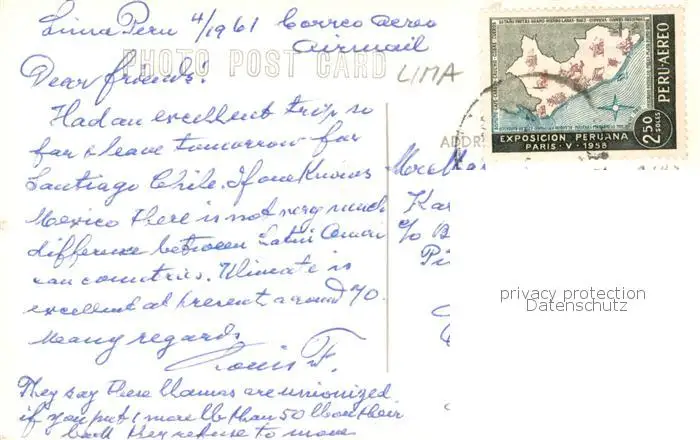 Lima Peru 4/1961 Correo Aereo
Airmail
PHOTO POST CARD
LIMA
Dear friends!
Had an excellent trip so
far & leave tomorrow for
Santiago Chile. If one knows
Mexico there is not very much
difference between Latin Ameri
can countries. Climate is
excellent at present around 70.
Many regards
Louis F.
They say these llamas are unionized
if you put 1 more lb than 50 lb on their
back they refuse to move
EXPOSICION PERUANA
PARIS - V - 1958
PERU-AEREO
2.50
SOLES
ADDR
Kar
c/o B
Pi
privacy protection
Datenschutz